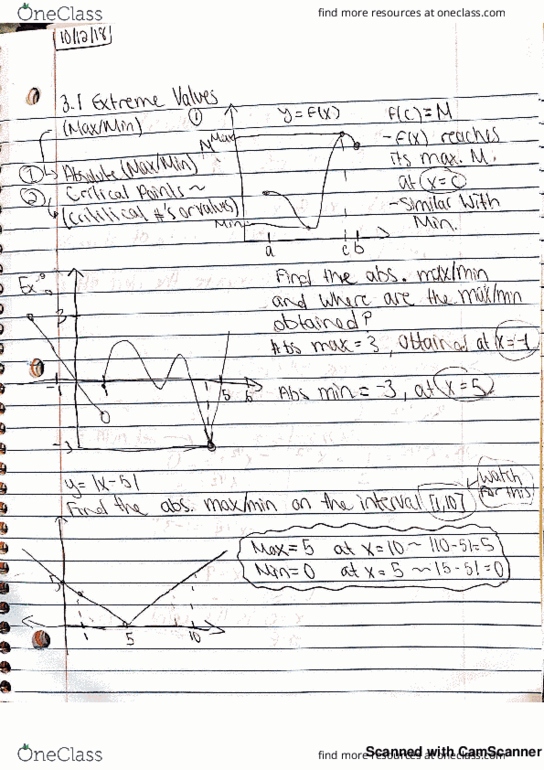 OneClass
find more resources at oneclass.com
10/12/18
3.1 Extreme Values
(Max/Min)
① Absolute (Max/Min)
② Critical Points ~
(Critical #'s or values)
①
y = f(x)
Max
M
Min
a
c
b
f(c) = M
- f(x) reaches
its max. M.
at x = c
- Similar with
Min.
Ex:
3
-1
1
5
6
-3
Find the abs. max/min
and where are the max/min
obtained?
Abs max = 3, obtained at x = -1
Abs min = -3, at x = 5
y = |x-5|
Find the abs. max/min on the interval [1,10]
watch
for this
Max = 5 at x = 10 ~ |10-5| = 5
Min = 0 at x = 5 ~ |5-5| = 0
5
1
5
10
OneClass
find more resources at oneclass.com
Scanned with CamScanner